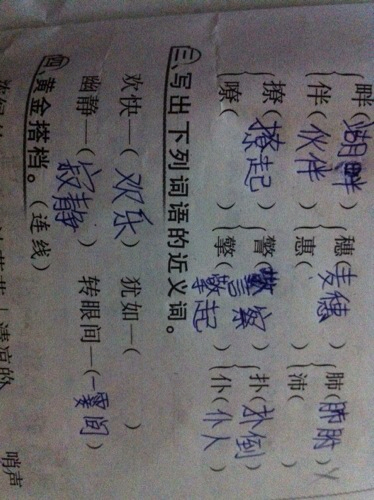 畔(湖畔) 穗(麦穗) 肺(肺)
伴(伙伴) 惠( ) 沛( )
撩(撩起) 警(警察) 扑(扑倒)
瞭( ) 擎(擎起) 仆(仆人)
三、写出下列词语的近义词。
欢快—(欢乐) 犹如—( )
幽静—(寂静) 转眼间—(一霎间)
四、黄金搭档。(连线)
清凉的 哨声